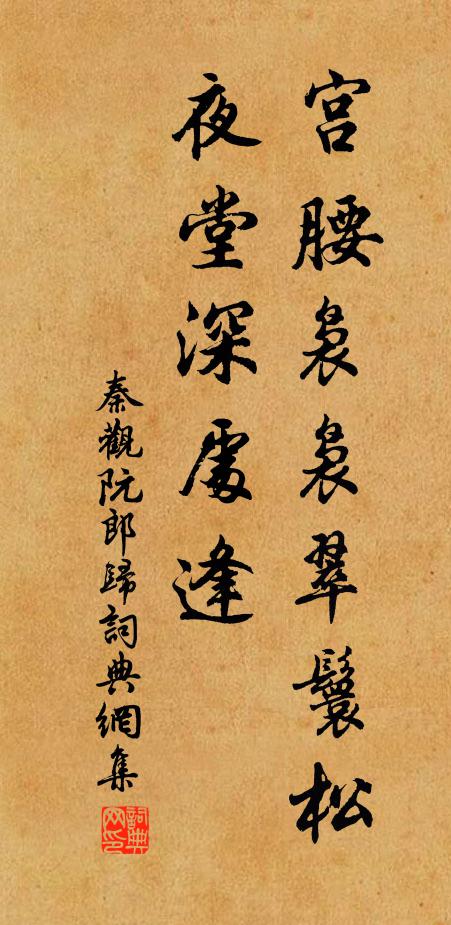 宫腰袅袅翠鬟松
夜堂深處逢
秦觀阮郎歸詞典網集
詞典网印